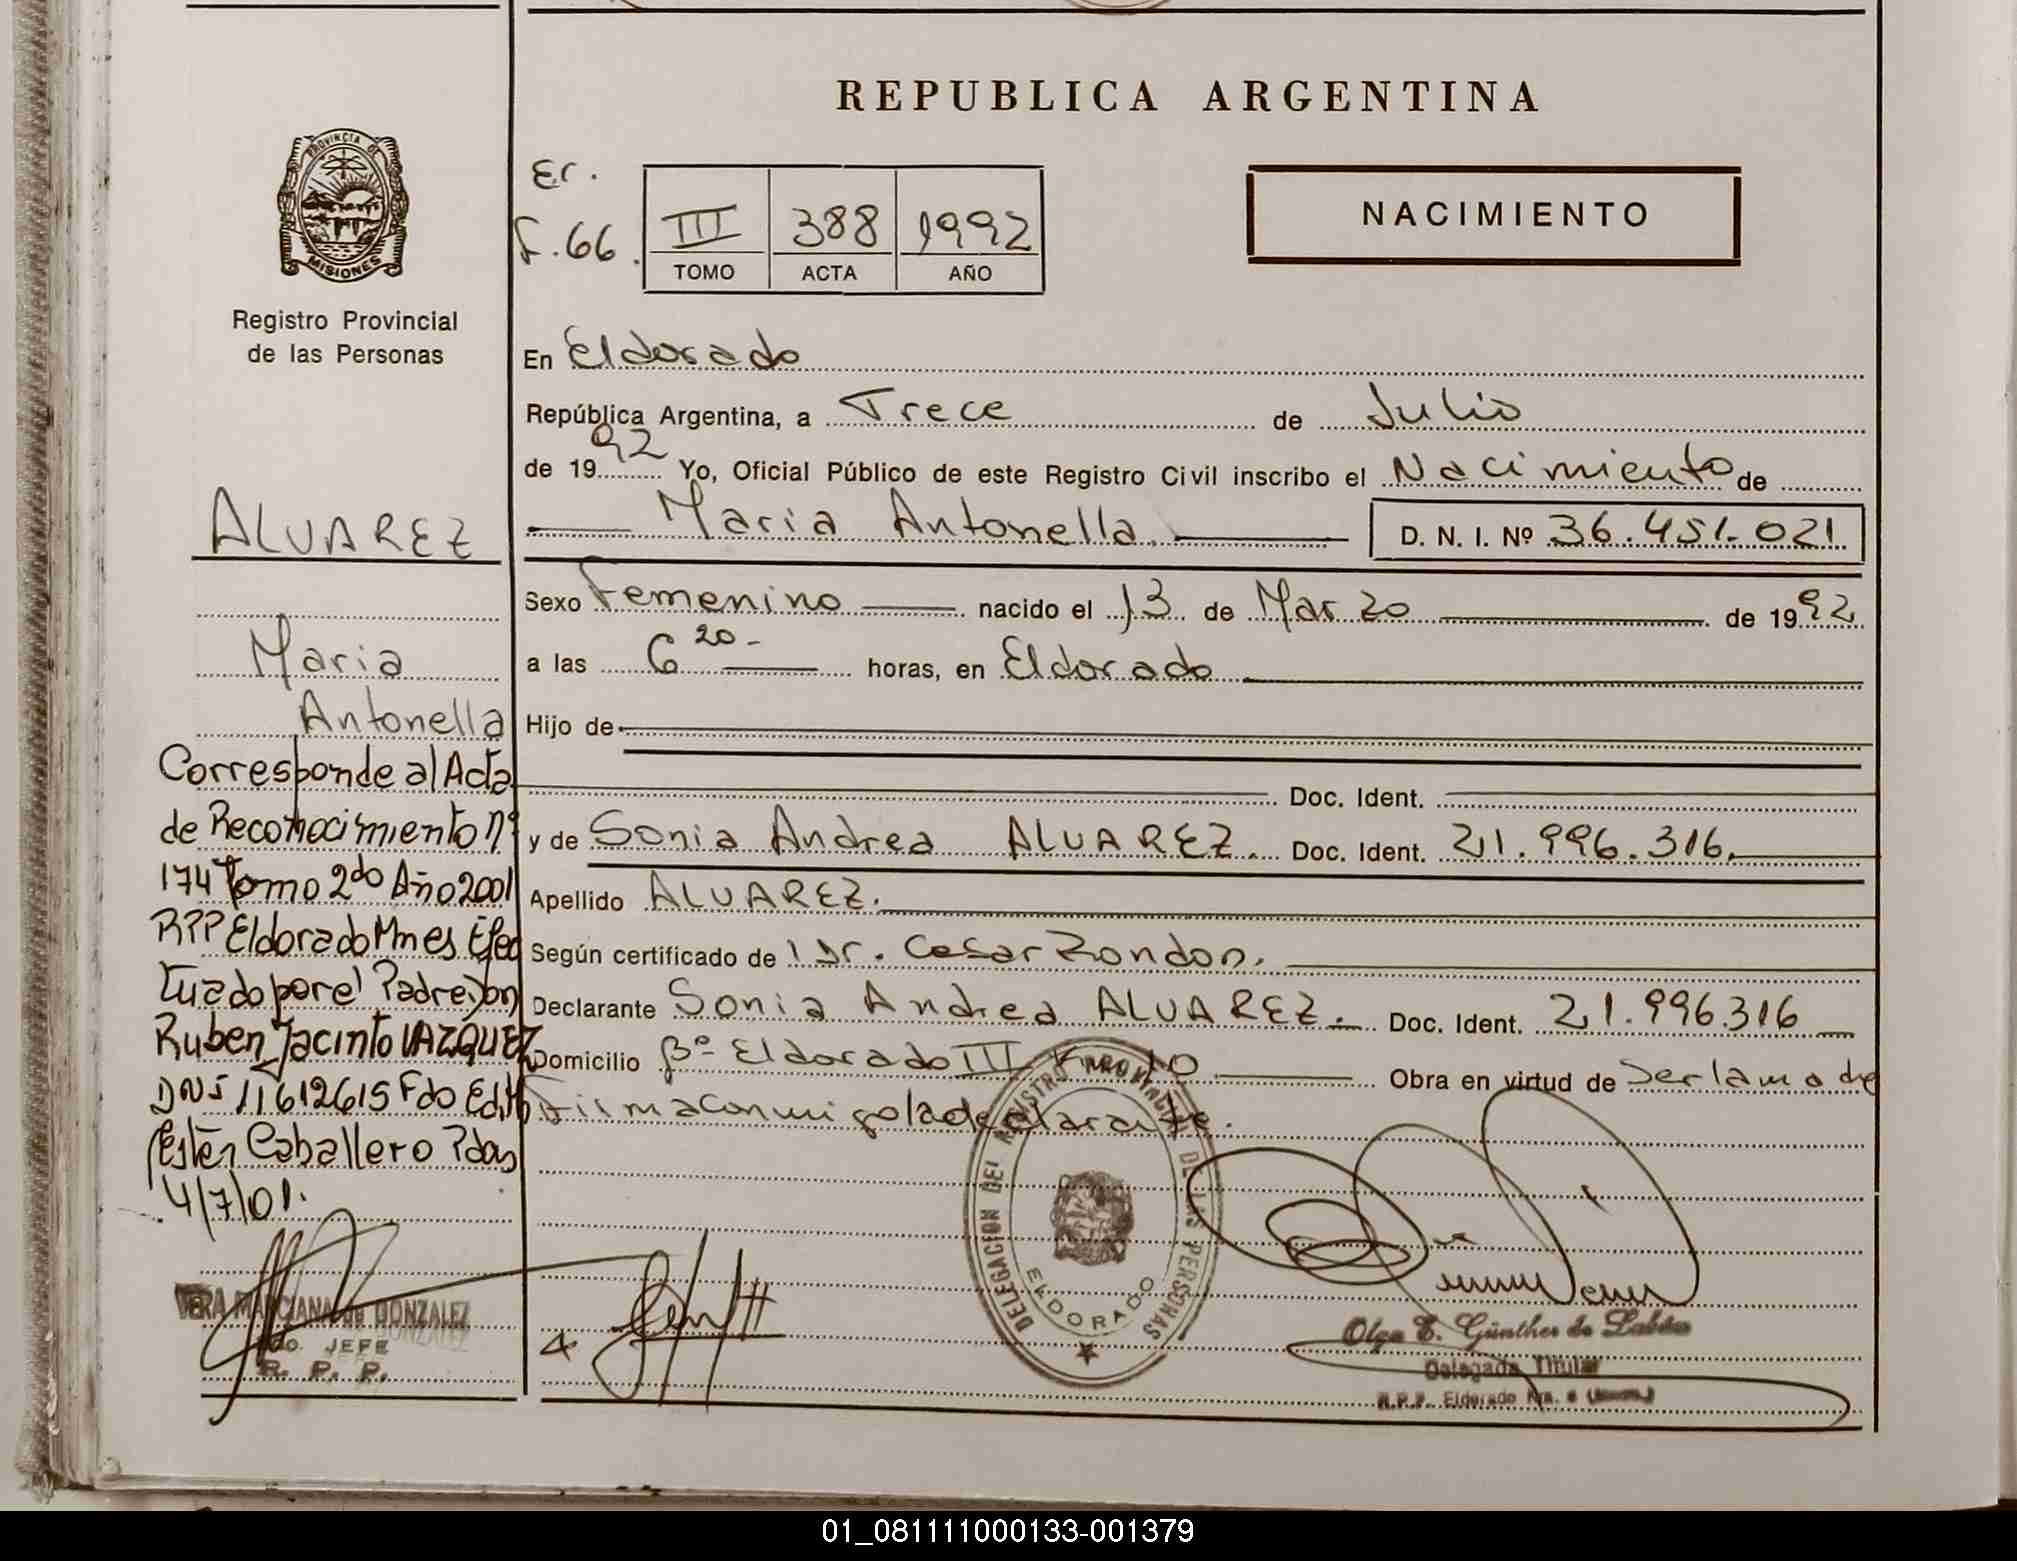 REPUBLICA ARGENTINA
PROVINCIA DE
MISIONES
Registro Provincial
de las Personas
Er.
F. 66.
III 388 1992
TOMO ACTA AÑO
NACIMIENTO
En Eldorado
República Argentina, a Trece de Julio
de 1992 Yo, Oficial Público de este Registro Civil inscribo el Nacimiento de
Maria Antonella.
D. N. I. Nº 36.451.021
Sexo Femenino nacido el 13 de Marzo de 1992
a las 6 20 - horas, en Eldorado
Hijo de
Doc. Ident.
y de Sonia Andrea ALVAREZ. Doc. Ident. 21.996.316.
Apellido ALVAREZ.
Según certificado de Dr. Cesar Rondon.
Declarante Sonia Andrea ALVAREZ. Doc. Ident. 21.996.316
Domicilio Bº Eldorado III Km 10 Obra en virtud de Ser la madre
Firma conmigo la declarante.
ALVAREZ
Maria
Antonella
Corresponde al Acta
de Reconocimiento nº
174 Tomo 2do Año 2001
RPP Eldorado Mnes Efec
tuado por el Padre Don
Ruben Jacinto VAZQUEZ
DNI 11612615 Fdo Edith
Ester Caballero Pdas
4/7/01.
VERA MARCIANA de GONZALEZ
JEFE
R. P. P.
DELEGACION DEL REGISTRO PROVINCIAL DE LAS PERSONAS
ELDORADO
Olga E. Günther de
Delegada Titular
R.P.P. Eldorado
01_081111000133-001379